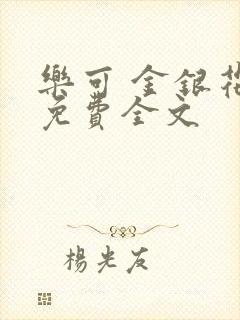 樂可 金銀花
免費全文
楊光友